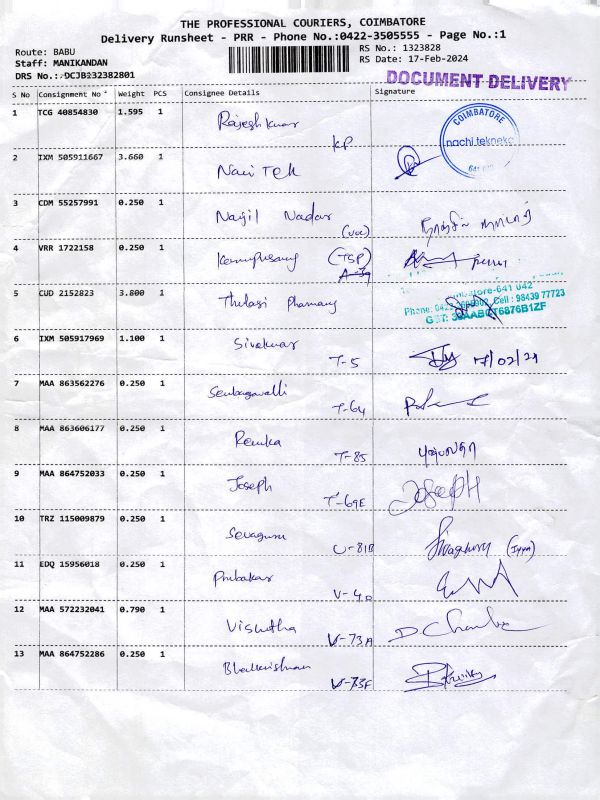 THE PROFESSIONAL COURIERS, COIMBATORE
Delivery Runsheet - PRR - Phone No.:0422-3505555 - Page No.:1
Route: BABU
RS No.: 1323828
Staff: MANIKANDAN
RS Date: 17-Feb-2024
DRS No.: DCJB232382801
DOCUMENT DELIVERY
S No Consignment No Weight PCS Consignee Details Signature
1 TCG 40854830 1.595 1 Rajesh Kumar KP
COIMBATORE
nachi tekneks
2 IXM 505911667 3.660 1 Navi Tek
3 CDM 55257991 0.250 1 Nanjil Nadar
4 VRR 1722158 0.250 1 (TSP)
5 CUD 2152823 3.800 1 Thulasi Pharmacy
641 042
Cell : 98439 77723
6 IXM 505917969 1.100 1 Sivakumar T-5 17/02/24
7 MAA 863562276 0.250 1 Senbagavalli T-64
8 MAA 863606177 0.250 1 Renuka T-85
9 MAA 864752033 0.250 1 Joseph T-69E Joseph
10 TRZ 115009879 0.250 1 Sevaguru U-81B
11 EDQ 15956018 0.250 1 Prabakar
12 MAA 572232041 0.790 1 V-73A
13 MAA 864752286 0.250 1 V-73F